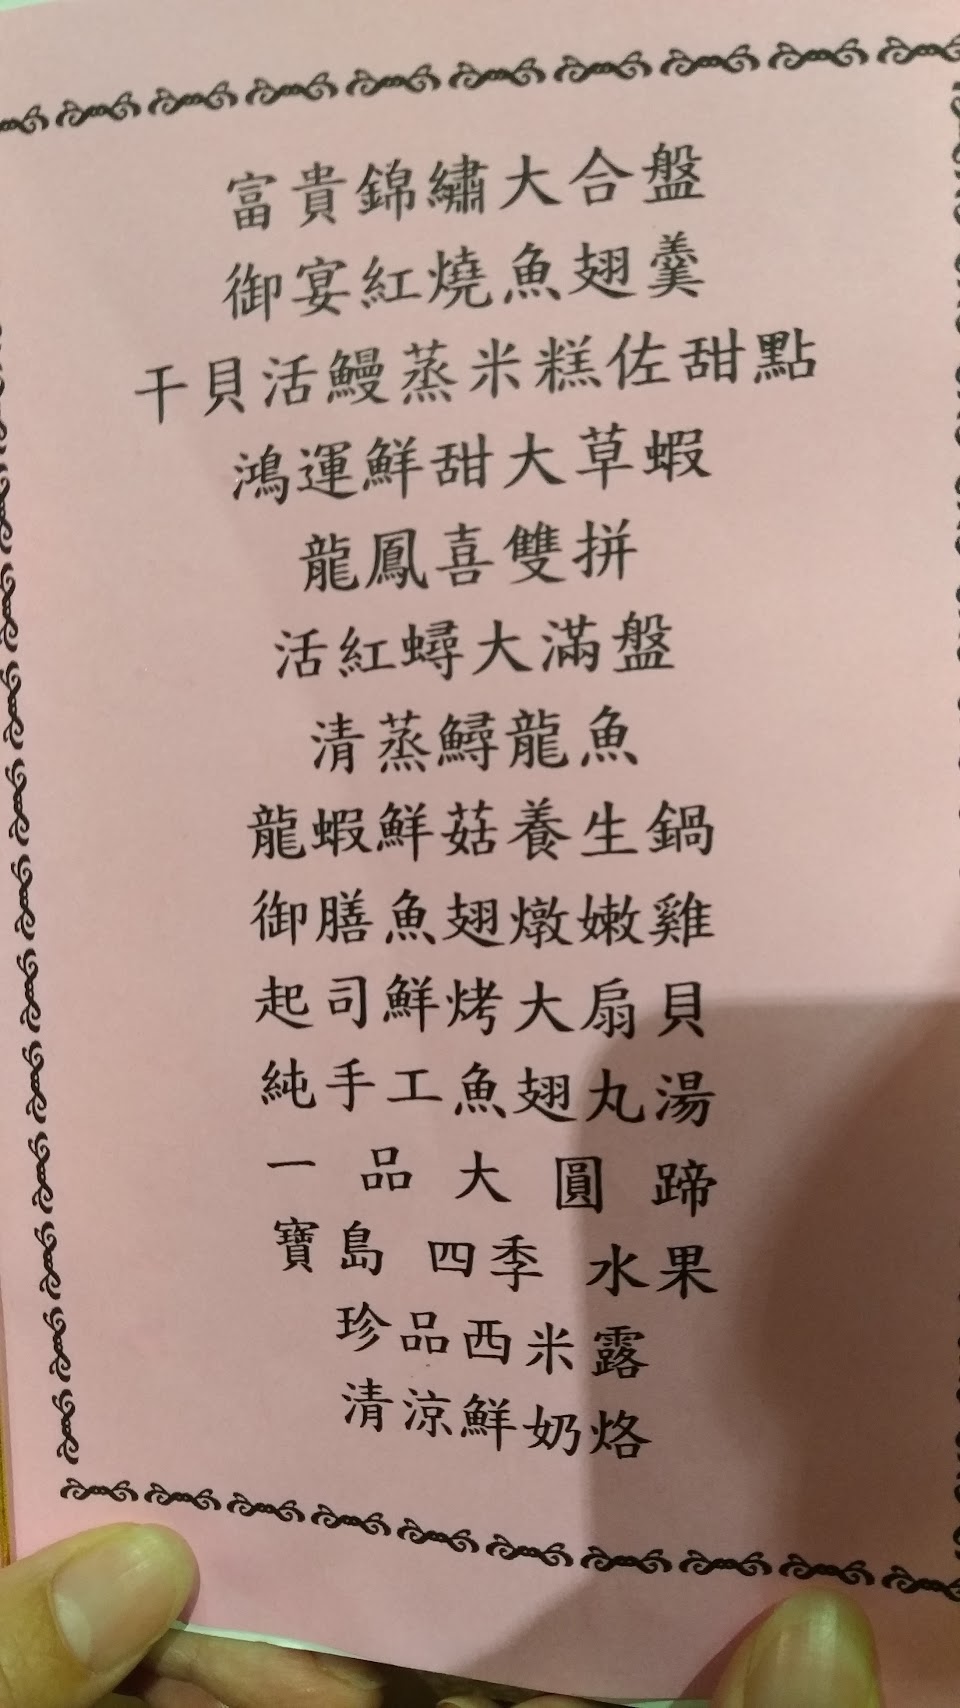 富貴錦繡大合盤
御宴紅燒魚翅羹
干貝活鰻蒸米糕佐甜點
鴻運鮮甜大草蝦
龍鳳喜雙拼
活紅蟳大滿盤
清蒸鱘龍魚
龍蝦鮮菇養生鍋
御膳魚翅燉嫩雞
起司鮮烤大扇貝
純手工魚翅丸湯
一品大圓蹄
寶島 四季 水果
珍品西米露
清涼鮮奶烙